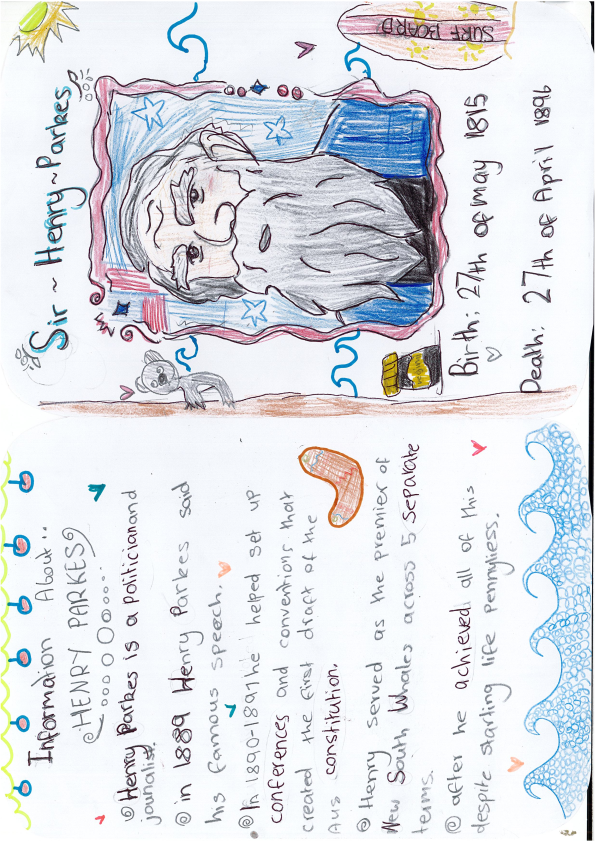 Sir ~ Henry ~ Parkes
SURF BOARD
Birth: 27th of may 1815
Death: 27th of April 1896
Information About:.
HENRY PARKES
Henry Parkes is a politician and
jounalist.
in 1889 Henry Parkes said
his famous speech.
In 1890-1891 he helped set up
conferences and conventions that
created the first dract of the
Aus constitution.
Henry served as the premier of
New South Whales across 5 separate
terms.
after he achieved all of this
despite starting life pennyliess.